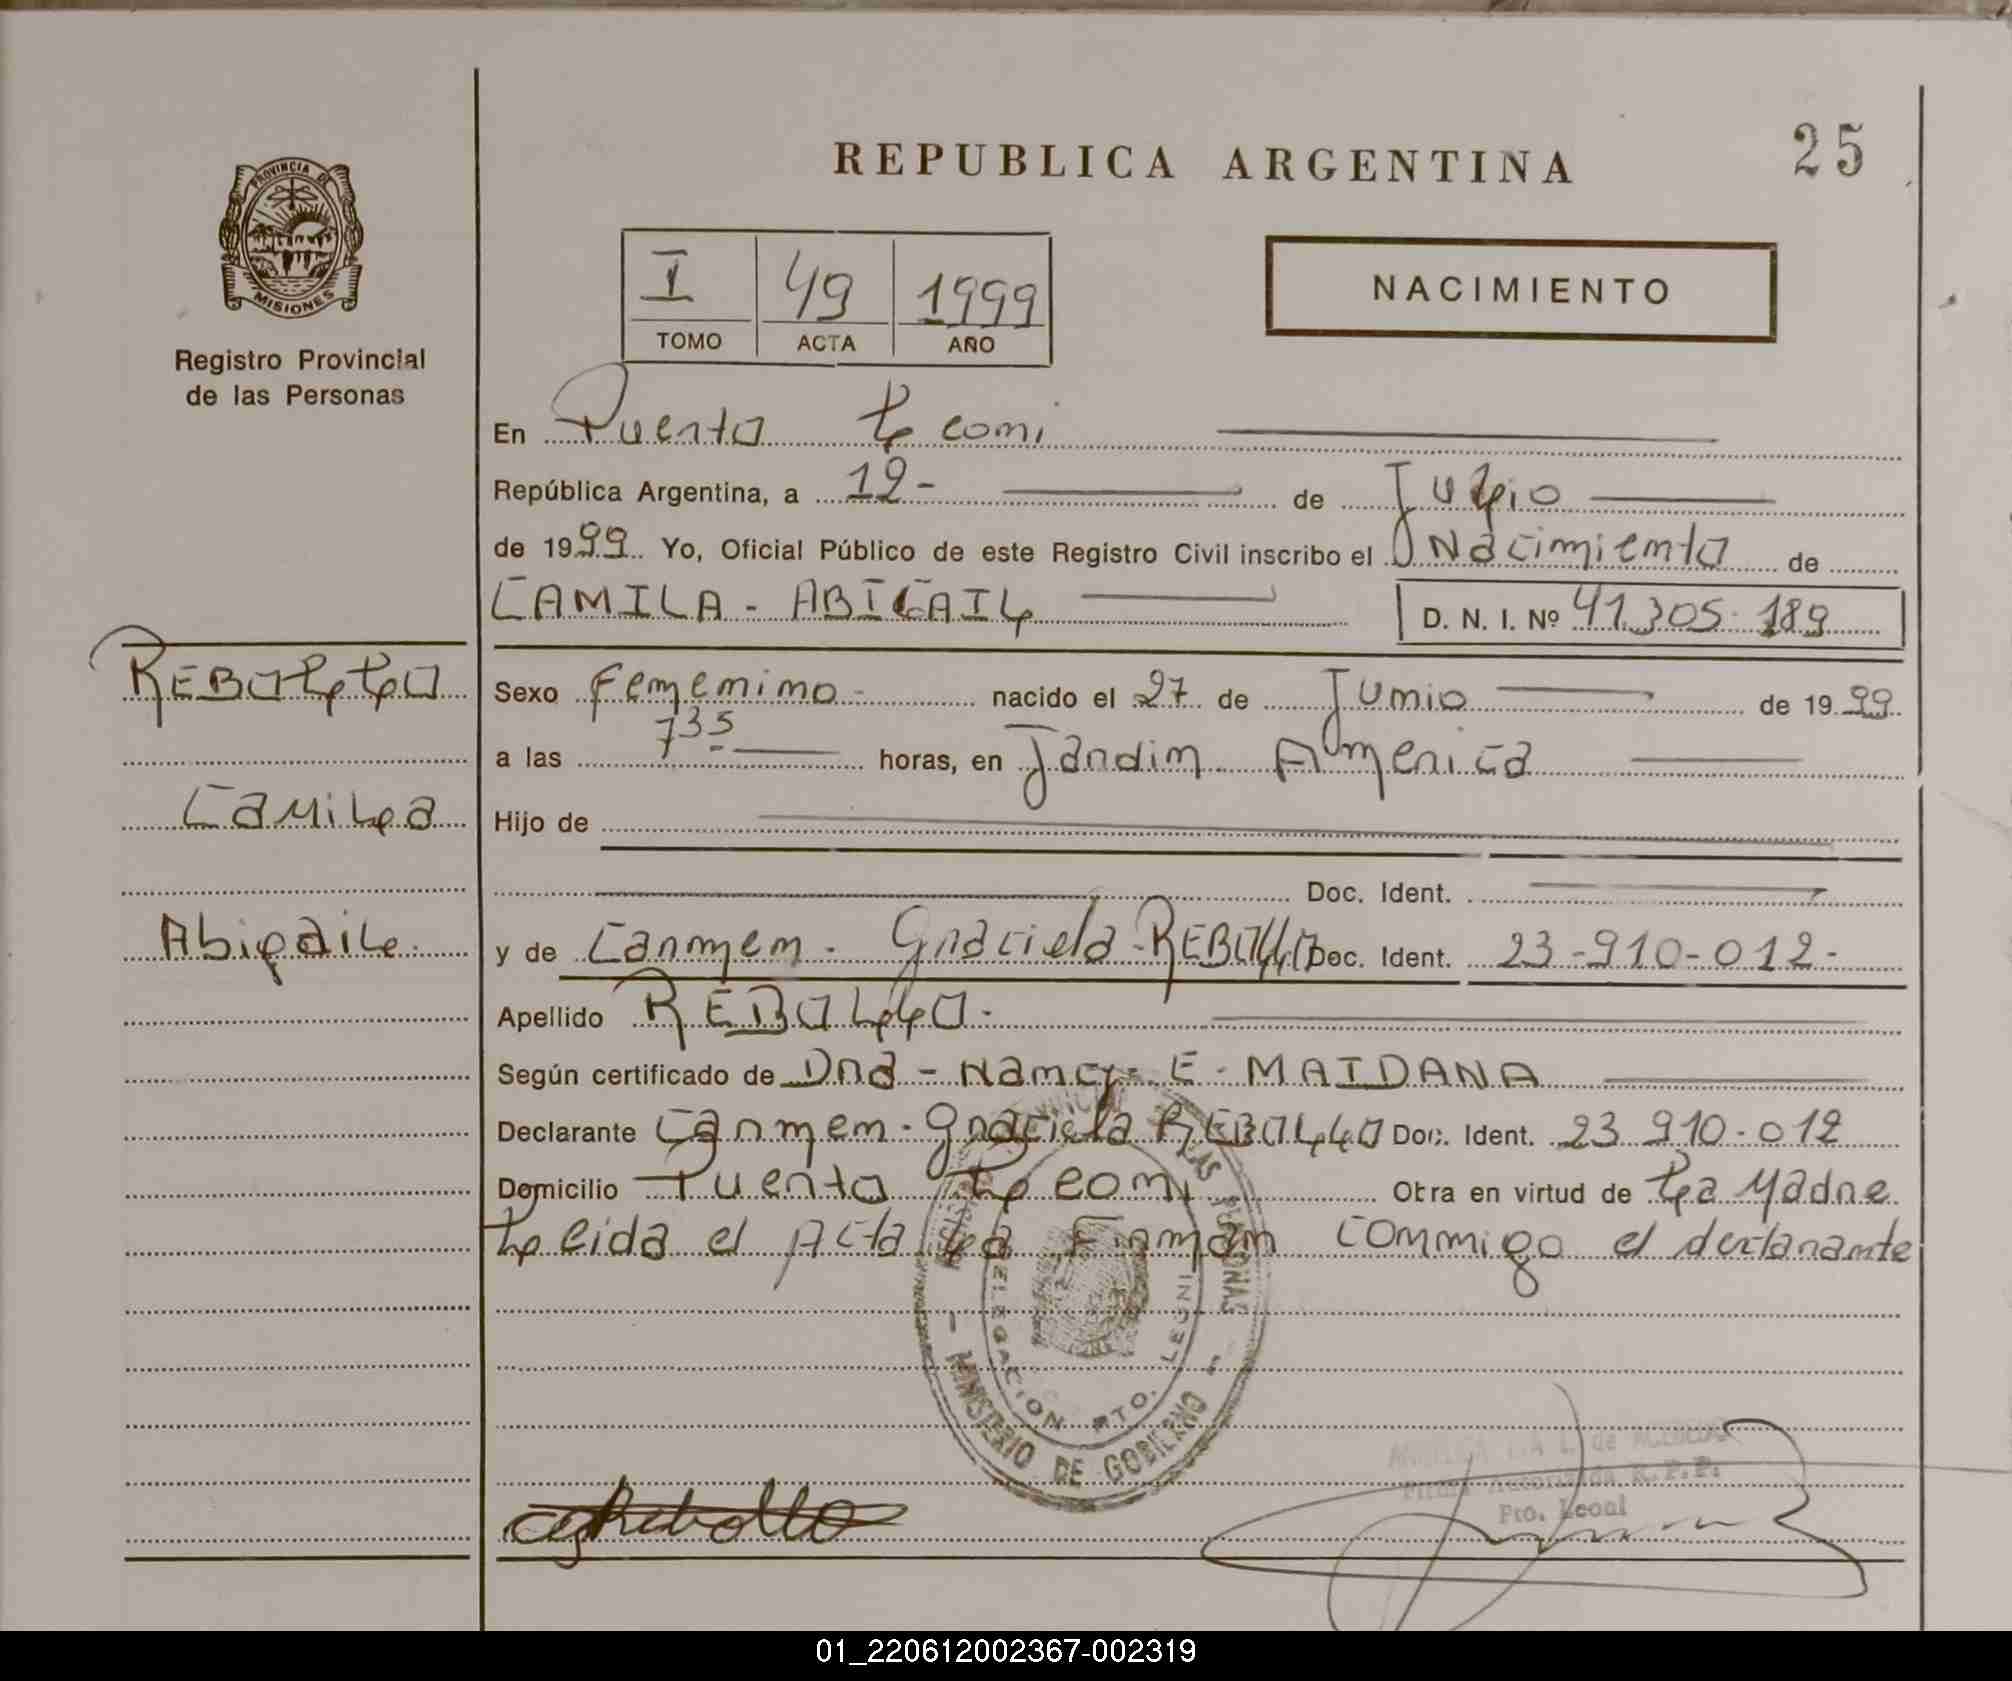 REPUBLICA ARGENTINA
25
PROVINCIA DE
MISIONES
Registro Provincial
de las Personas
I 49 1999
TOMO ACTA AÑO
NACIMIENTO
En Puerto Leoni
República Argentina, a 12- de Julio
de 1999 Yo, Oficial Público de este Registro Civil inscribo el Nacimiento de
CAMILA - ABIGAIL D. N. I. Nº 41.305.189
REBOLLO
Sexo Femenino - nacido el 27 de Junio de 1999
a las 7 35 horas, en Jardin America
Camila
Hijo de
Doc. Ident.
Abigail.
y de Carmen - Graciela - REBOLLO Doc. Ident. 23-910-012-
Apellido REBOLLO -
Según certificado de Dra - Nancy - E - MAIDANA
Declarante Carmen - Graciela REBOLLO Doc. Ident. 23 910-012
Domicilio Puerto Leoni Obra en virtud de La Madre
Leida el Acta La Firman Conmigo el declarante
DELEGACION PTO. LEONI
- MINISTERIO DE GOBIERNO -
de
Firma Autorizada R.P.P.
Pto. Leoni
cgRebollo
01_220612002367-002319